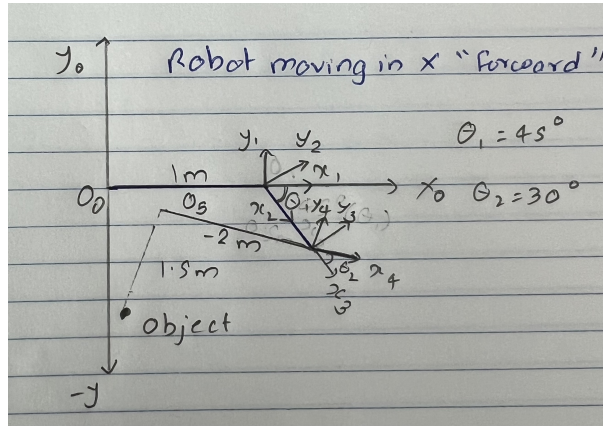 y₀
Robot moving in x "forward"
θ₁ = 45°
y₁ y₂
1m
x₁
O₀
X₀
θ₂ = 30°
O₅
x₂
θ₁
y₄ y₃
-2 m
1.5m
θ₂ x₄
x₃
object
-y